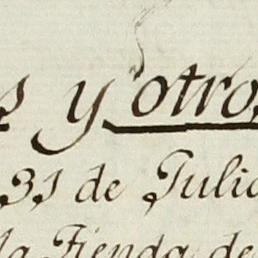 s y otro
31 de Julio
la Tienda de